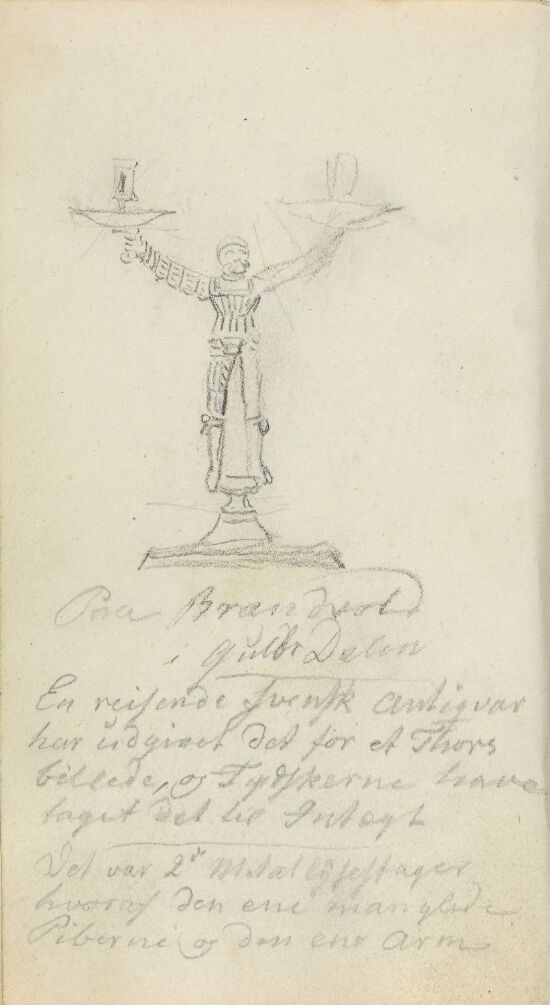 Paa Brandvold
i GuldrDalen
En reisende svensk Antiqvar
har udgivet det for et Thors
billede, og Tydskerne have
taget det til Indtægt
Det var 2de Metal lysestager
hvoraf den ene manglede
Piberne og den ene Arm